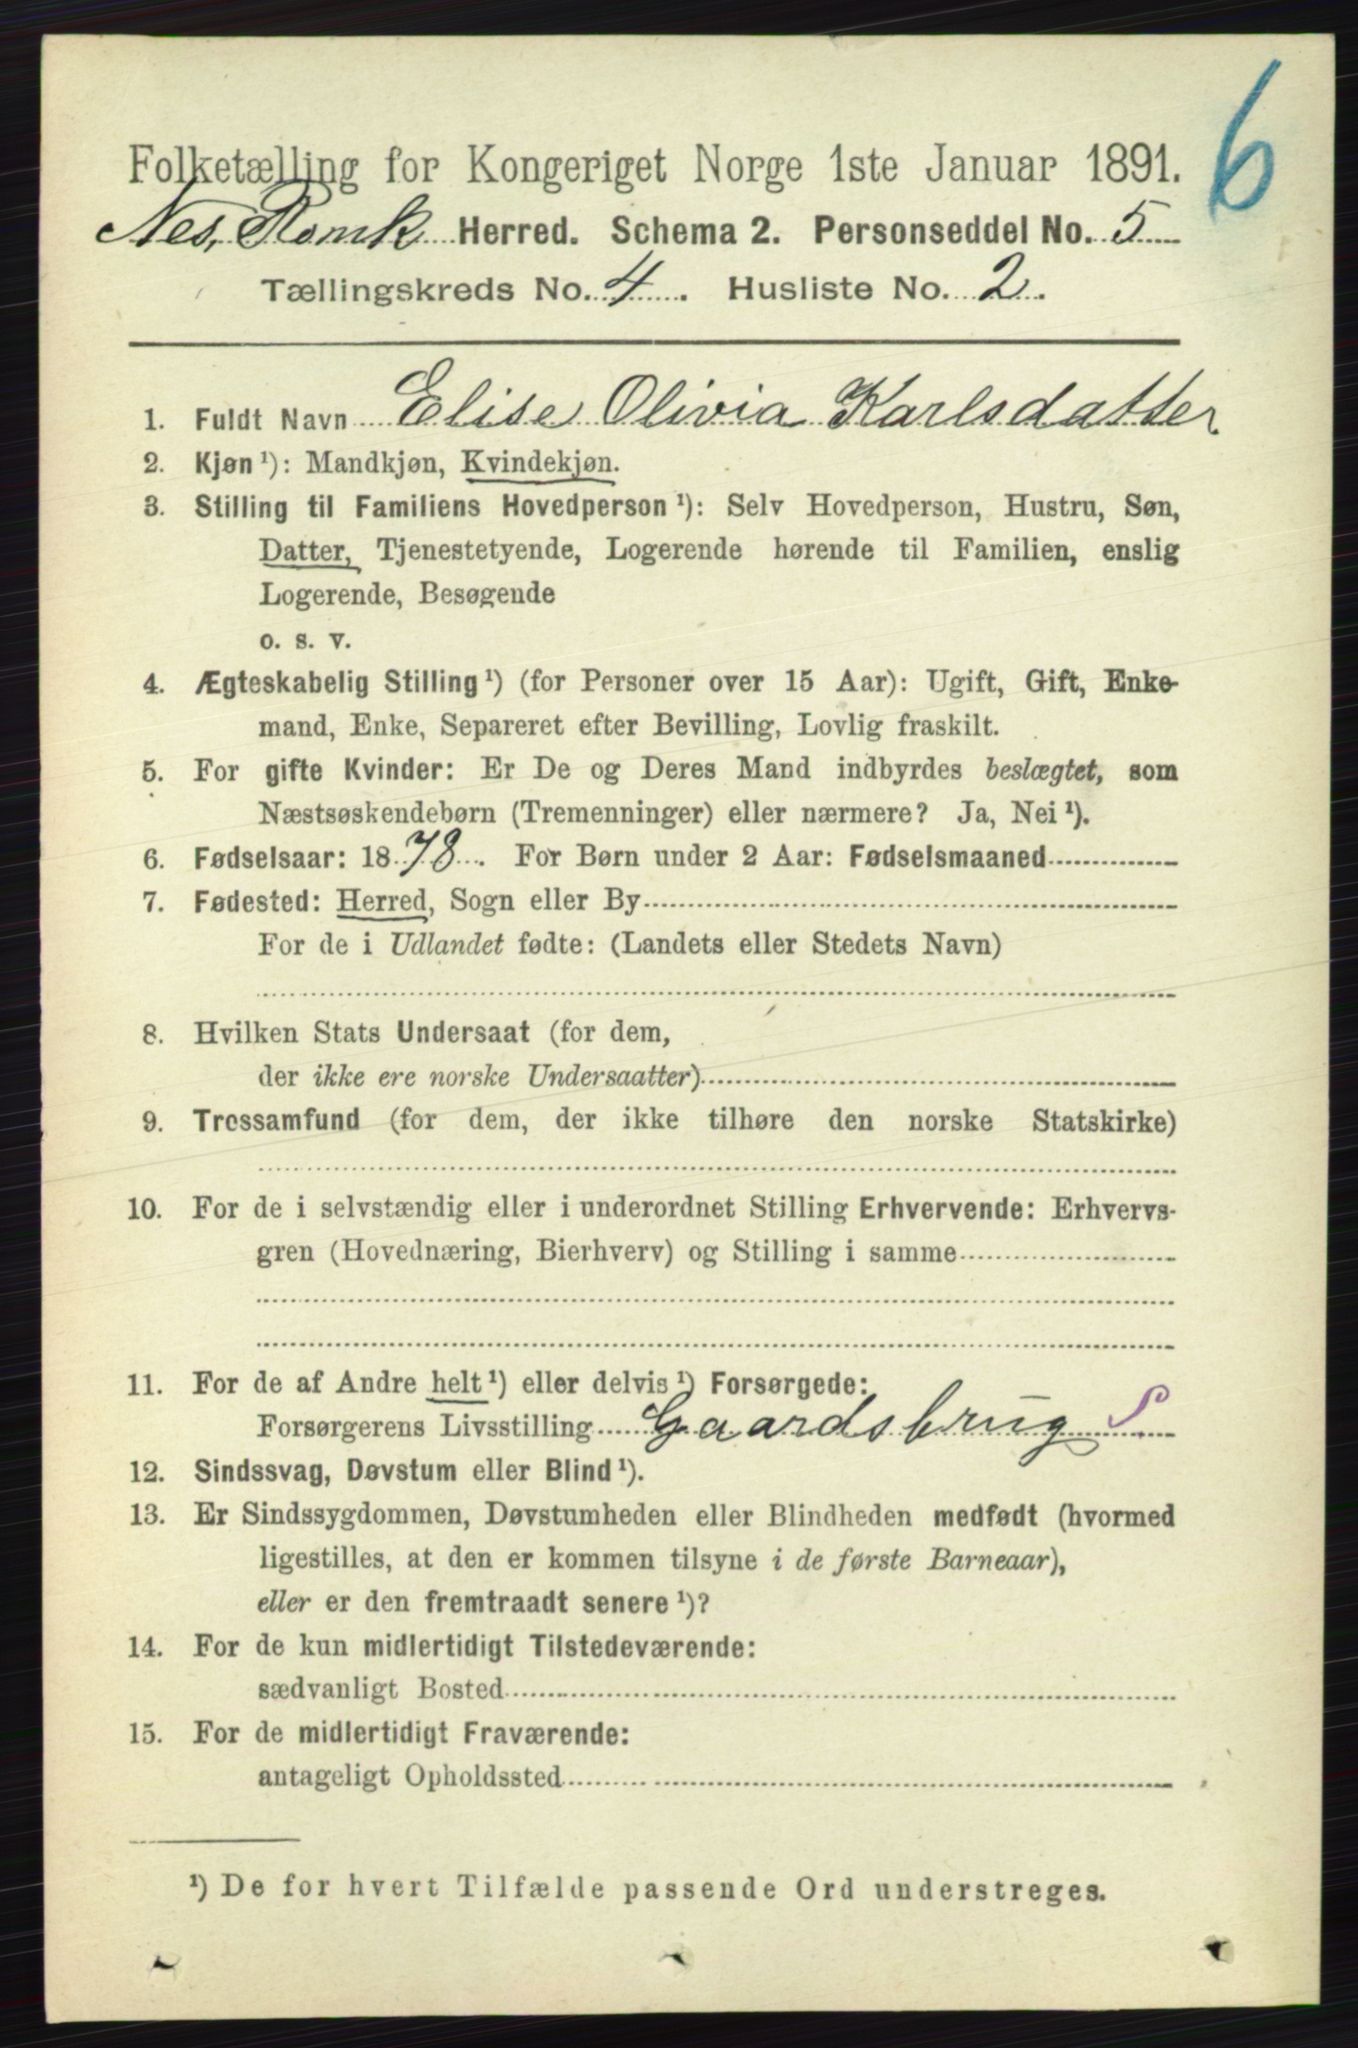 6
Folketælling for Kongeriget Norge 1ste Januar 1891.
Nes, Romk Herred. Schema 2. Personseddel No. 5
Tællingskreds No. 4. Husliste No. 2.
1. Fuldt Navn Elise Olivia Karlsdatter
2. Kjøn¹): Mandkjøn, Kvindekjøn.
3. Stilling til Familiens Hovedperson¹): Selv Hovedperson, Hustru, Søn,
Datter, Tjenestetyende, Logerende hørende til Familien, enslig
Logerende, Besøgende
o. s. v.
4. Ægteskabelig Stilling¹) (for Personer over 15 Aar): Ugift, Gift, Enke-
mand, Enke, Separeret efter Bevilling, Lovlig fraskilt.
5. For gifte Kvinder: Er De og Deres Mand indbyrdes beslægtet, som
Næstsøskendebørn (Tremenninger) eller nærmere? Ja, Nei¹).
6. Fødselsaar: 1878. For Børn under 2 Aar: Fødselsmaaned
7. Fødested: Herred, Sogn eller By
For de i Udlandet fødte: (Landets eller Stedets Navn)
8. Hvilken Stats Undersaat (for dem,
der ikke ere norske Undersaatter)
9. Trossamfund (for dem, der ikke tilhøre den norske Statskirke)
10. For de i selvstændig eller i underordnet Stilling Erhvervende: Erhvervs-
gren (Hovednæring, Bierhverv) og Stilling i samme
11. For de af Andre helt¹) eller delvis¹) Forsørgede:
Forsørgerens Livsstilling Gaardsbrug S
12. Sindssvag, Døvstum eller Blind¹).
13. Er Sindssygdommen, Døvstumheden eller Blindheden medfødt (hvormed
ligestilles, at den er kommen tilsyne i de første Barneaar),
eller er den fremtraadt senere¹)?
14. For de kun midlertidigt Tilstedeværende:
sædvanligt Bosted
15. For de midlertidigt Fraværende:
antageligt Opholdssted
¹) De for hvert Tilfælde passende Ord understreges.